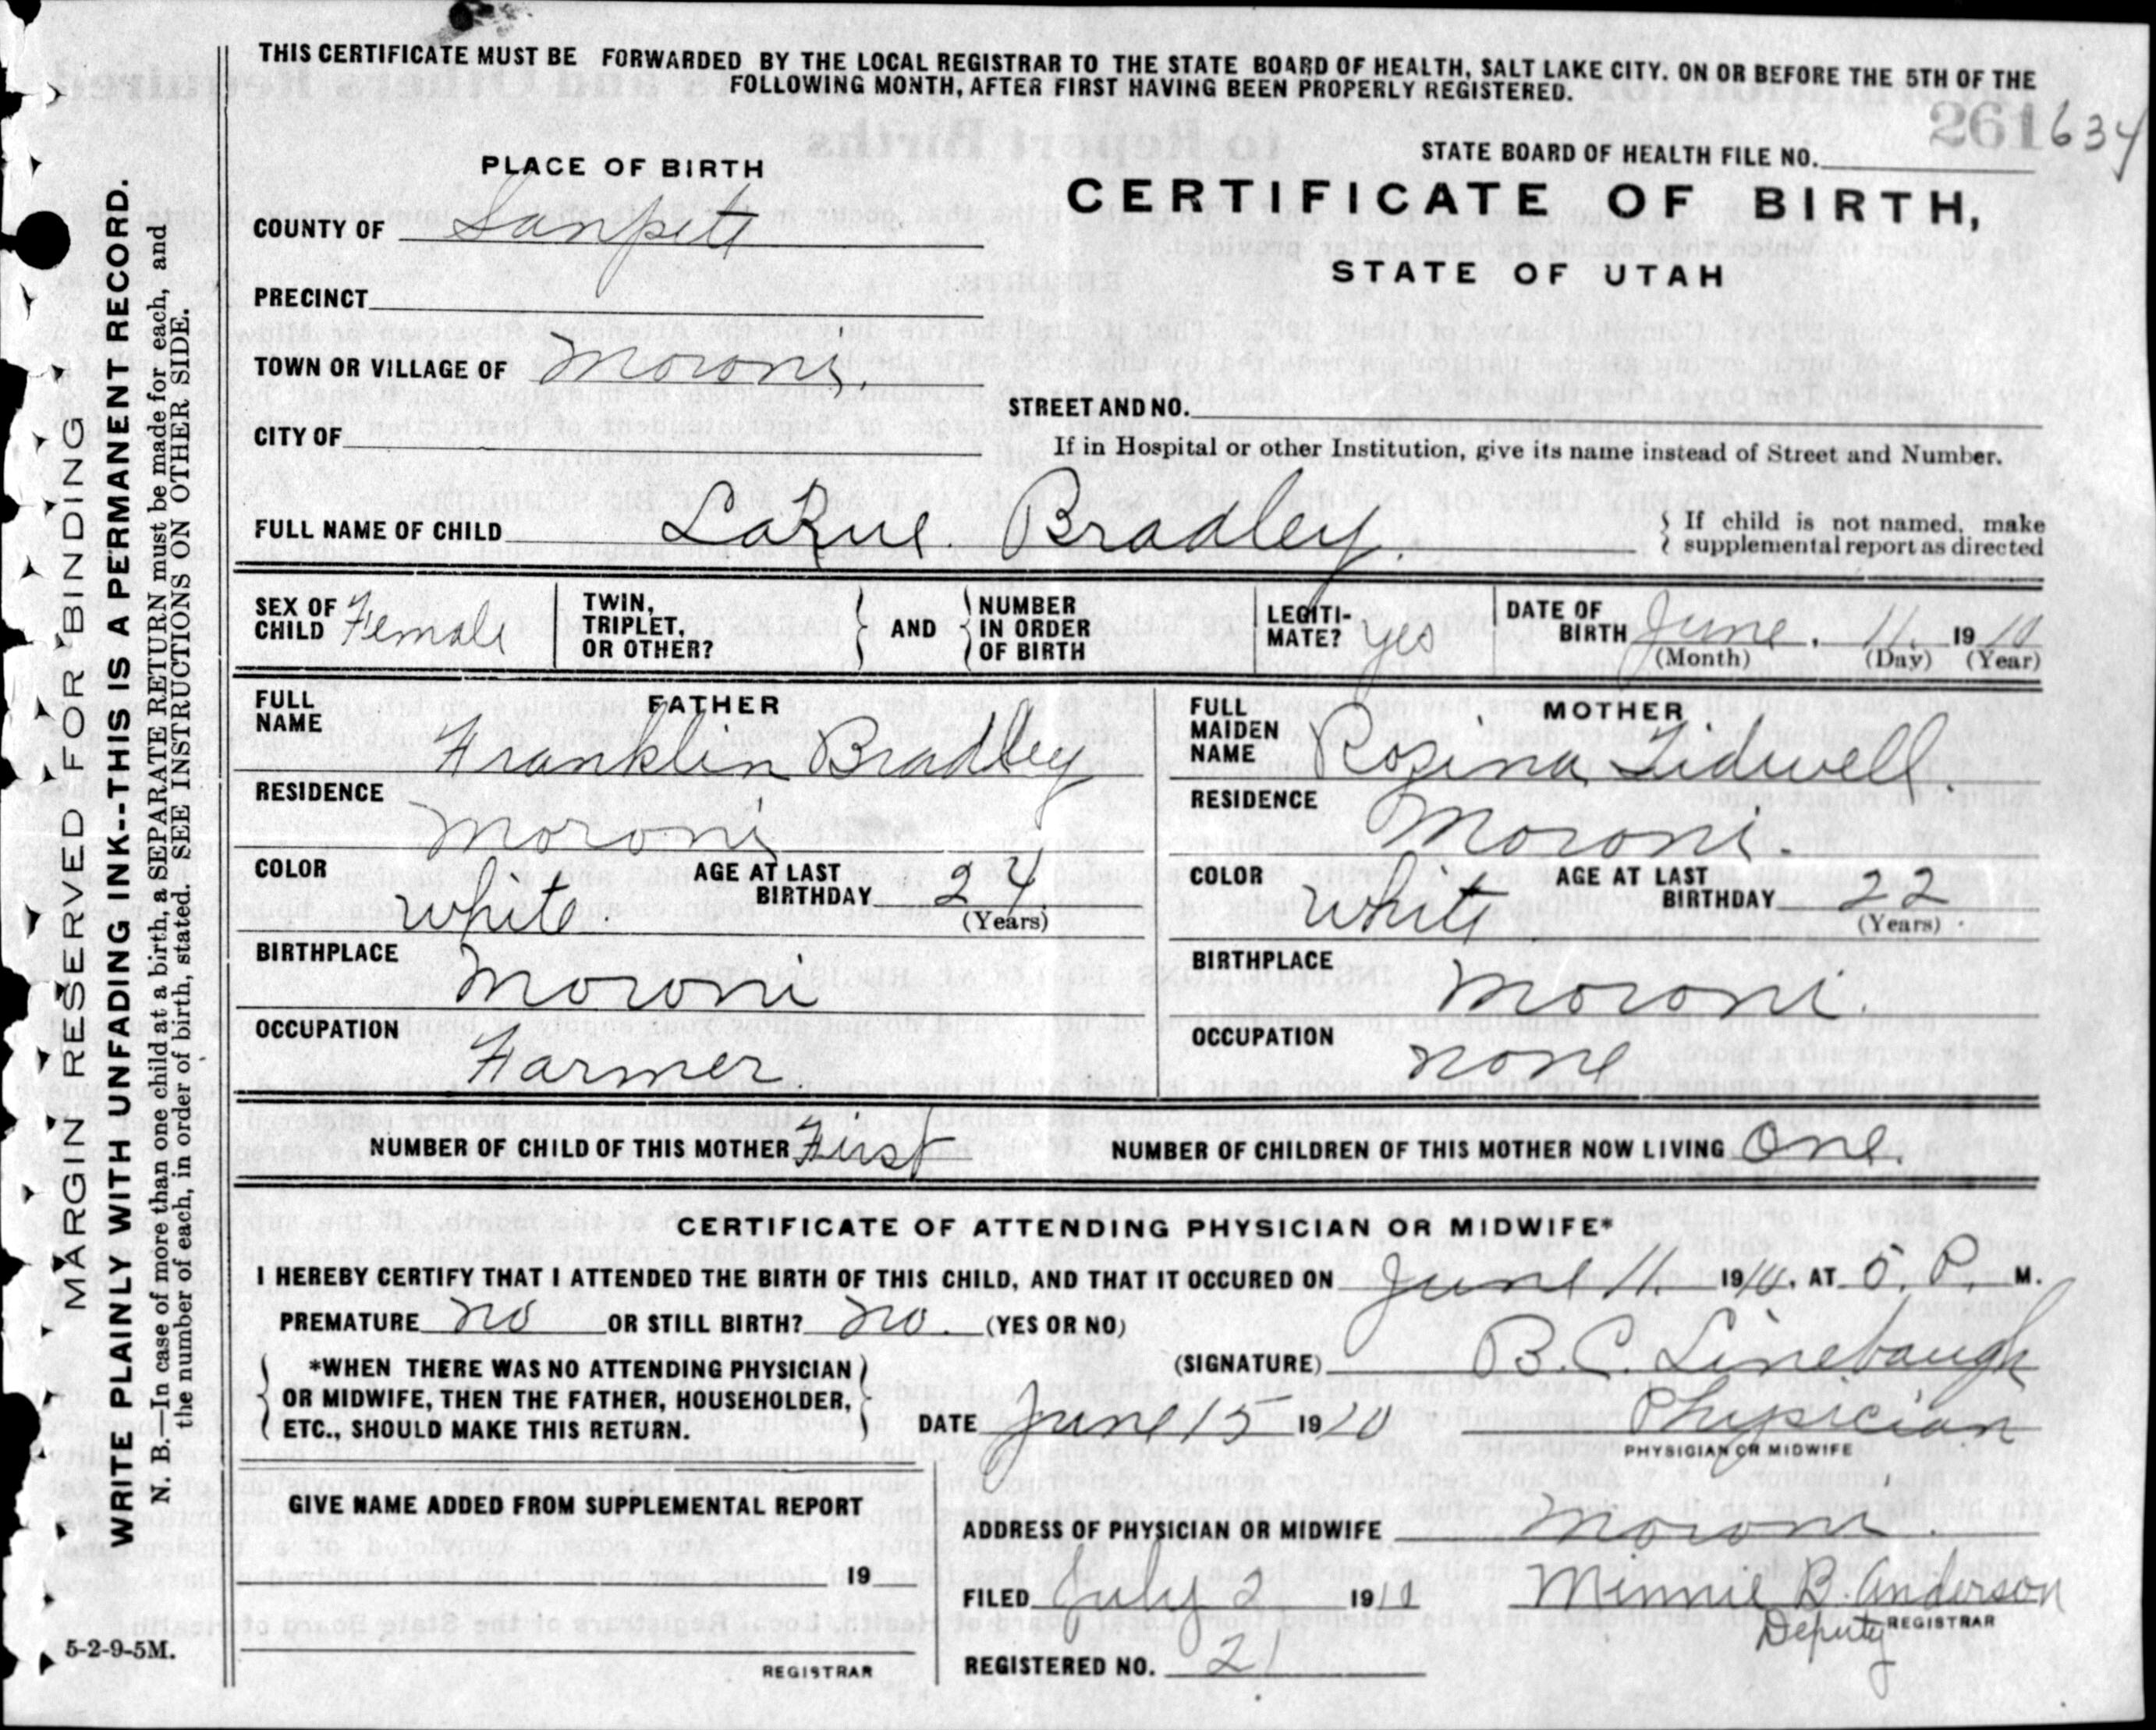 THIS CERTIFICATE MUST BE FORWARDED BY THE LOCAL REGISTRAR TO THE STATE BOARD OF HEALTH, SALT LAKE CITY. ON OR BEFORE THE 5TH OF THE
FOLLOWING MONTH, AFTER FIRST HAVING BEEN PROPERLY REGISTERED.
261634
STATE BOARD OF HEALTH FILE NO.
PLACE OF BIRTH
CERTIFICATE OF BIRTH,
STATE OF UTAH
COUNTY OF Sanpete
PRECINCT
TOWN OR VILLAGE OF Moroni.
STREET AND NO.
CITY OF
If in Hospital or other Institution, give its name instead of Street and Number.
FULL NAME OF CHILD LaRue. Bradley.
If child is not named, make
supplemental report as directed
SEX OF CHILD Female
TWIN, TRIPLET, OR OTHER? AND NUMBER IN ORDER OF BIRTH
LEGITI-MATE? yes
DATE OF BIRTH June. 11. 1910
(Month) (Day) (Year)
FATHER
FULL NAME Franklin Bradley
RESIDENCE Moroni
COLOR white. AGE AT LAST BIRTHDAY 24
(Years)
BIRTHPLACE Moroni
OCCUPATION Farmer.
MOTHER
FULL MAIDEN NAME Rosina Tidwell.
RESIDENCE Moroni.
COLOR White AGE AT LAST BIRTHDAY 22
(Years)
BIRTHPLACE Moroni.
OCCUPATION none
NUMBER OF CHILD OF THIS MOTHER First NUMBER OF CHILDREN OF THIS MOTHER NOW LIVING One.
CERTIFICATE OF ATTENDING PHYSICIAN OR MIDWIFE*
I HEREBY CERTIFY THAT I ATTENDED THE BIRTH OF THIS CHILD, AND THAT IT OCCURED ON June 11. 1910. AT 5. P. M.
PREMATURE no OR STILL BIRTH? no. (YES OR NO)
*WHEN THERE WAS NO ATTENDING PHYSICIAN
OR MIDWIFE, THEN THE FATHER, HOUSEHOLDER,
ETC., SHOULD MAKE THIS RETURN.
(SIGNATURE) B. C. Linebaugh
DATE June 15 1910 Physician
PHYSICIAN OR MIDWIFE
GIVE NAME ADDED FROM SUPPLEMENTAL REPORT
19
REGISTRAR
ADDRESS OF PHYSICIAN OR MIDWIFE Moroni.
FILED July 2 1910 Minnie B. Anderson
Deputy REGISTRAR
REGISTERED NO. 21
MARGIN RESERVED FOR BINDING
WRITE PLAINLY WITH UNFADING INK--THIS IS A PERMANENT RECORD.
N. B.—In case of more than one child at a birth, a SEPARATE RETURN must be made for each, and
the number of each, in order of birth, stated. SEE INSTRUCTIONS ON OTHER SIDE.
5-2-9-5M.